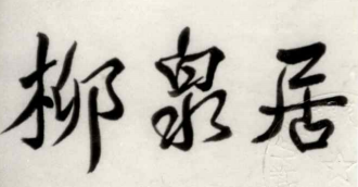 柳泉居